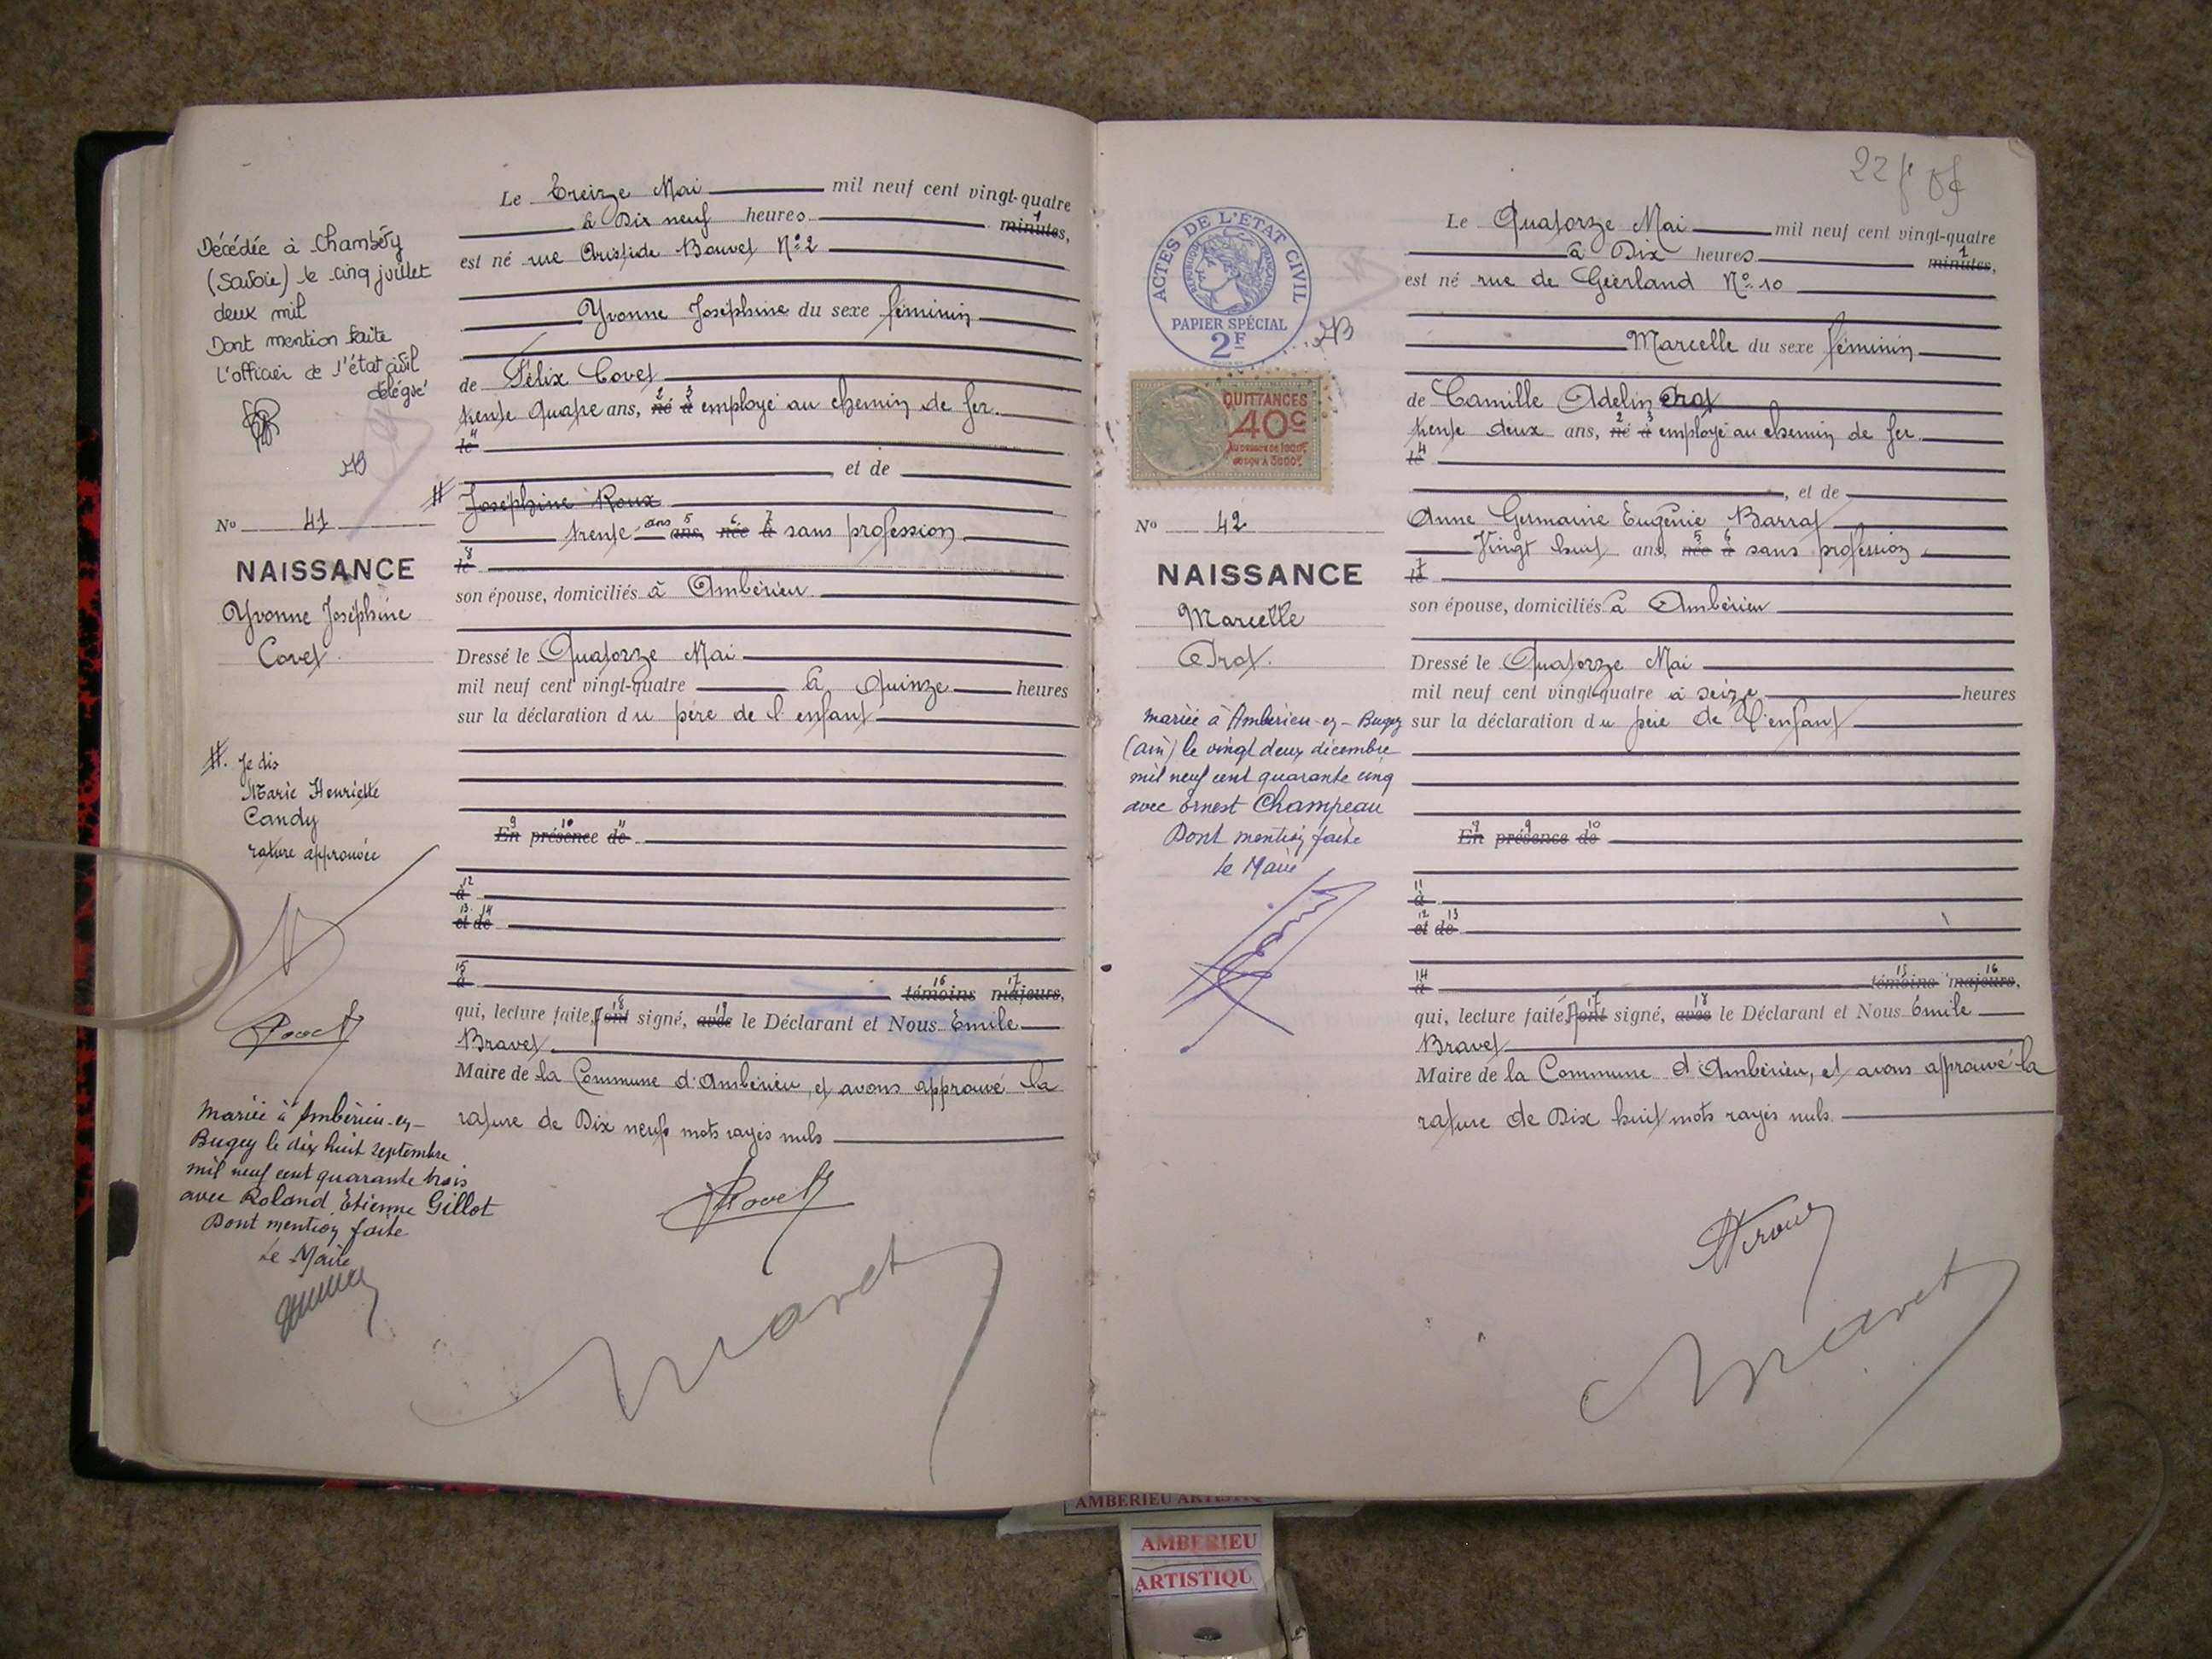 Le Treize Mai mil neuf cent vingt-quatre
à Dix neuf heures minutes,
est né rue Aristide Bouvet N° 2
Yvonne Joséphine du sexe féminin
de Félix Covet
trente quatre ans, né à employé au chemin de fer
le
, et de
Joséphine Roux
trente ans ans, née à sans profession
le
son épouse, domiciliés à Ambérieu
Dressé le Quatorze Mai
mil neuf cent vingt-quatre à Quinze heures
sur la déclaration du père de l'enfant
En présence de
à
et de
à témoins majeurs,
qui, lecture faite, ont signé, avec le Déclarant et Nous Emile
Bravet
Maire de la Commune d'Ambérieu, et avons approuvé la
rature de Dix neuf mots rayés nuls
Décédée à Chambéry
(Savoie) le cinq juillet
deux mil
Dont mention faite
L'officier de l'état civil
délégué
No 41
NAISSANCE
Yvonne Joséphine
Covet
Je dis
Marie Henriette
Candy
rature approuvée
Mariée à Ambérieu-en-
Bugey le dix huit septembre
mil neuf cent quarante trois
avec Roland Etienne Gillot
Dont mention faite
Le Maire
22
Le Quatorze Mai mil neuf cent vingt-quatre
à Dix heures minutes,
est né rue de Geerland N° 10
Marcelle du sexe féminin
de Camille Adelin Arot
trente deux ans, né à employé au chemin de fer
le
, et de
Anne Germaine Eugénie Barrat
Vingt huit ans, née à sans profession
le
son épouse, domiciliés à Ambérieu
Dressé le Quatorze Mai
mil neuf cent vingt-quatre à seize heures
sur la déclaration du père de l'enfant
En présence de
à
et de
à témoins majeurs,
qui, lecture faite, ont signé, avec le Déclarant et Nous Emile
Bravet
Maire de la Commune d'Ambérieu, et avons approuvé la
rature de Dix huit mots rayés nuls
ACTES DE L'ÉTAT CIVIL
RÉPUBLIQUE FRANÇAISE
PAPIER SPÉCIAL
2F
QUITTANCES
40c
No 42
NAISSANCE
Marcelle
Arot
Mariée à Ambérieu-en-Bugey
(Ain) le vingt deux décembre
mil neuf cent quarante cinq
avec Ernest Champeau
Dont mention faite
Le Maire
AMBERIEU ARTISTIQ
AMBERIEU
ARTISTIQU